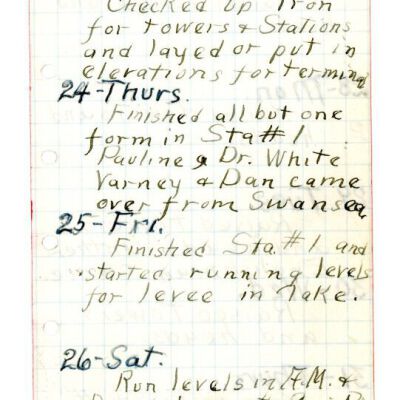 Checked up iron
for towers & Stations
and layed or put in
elevations for terminal
24-Thurs.
Finished all but one
form in Sta #1.
Pauline & Dr. White
Varney & Dan came
over from Swansea.
25-Fri.
Finished Sta. #1 and
started running levels
for levee in lake.
26-Sat.
Run levels in A.M. &